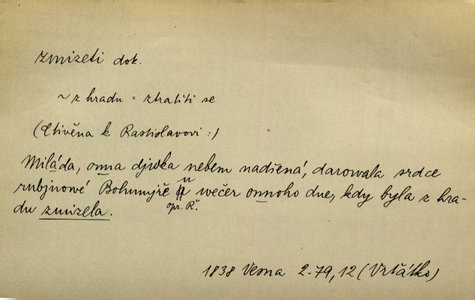 zmizeti dok.
~ z hradu = ztratiti se
(Ctiwěna k Rastislavovi :)
Miláda, onna djwka nebem nadšená, darowala srdce
rubjnowé Bohumjře w wečer onnoho dne, kdy byla z hra-
opr. Ř.
du zmizela.
1838 Vesna 2-79,12 (Vrťátko)